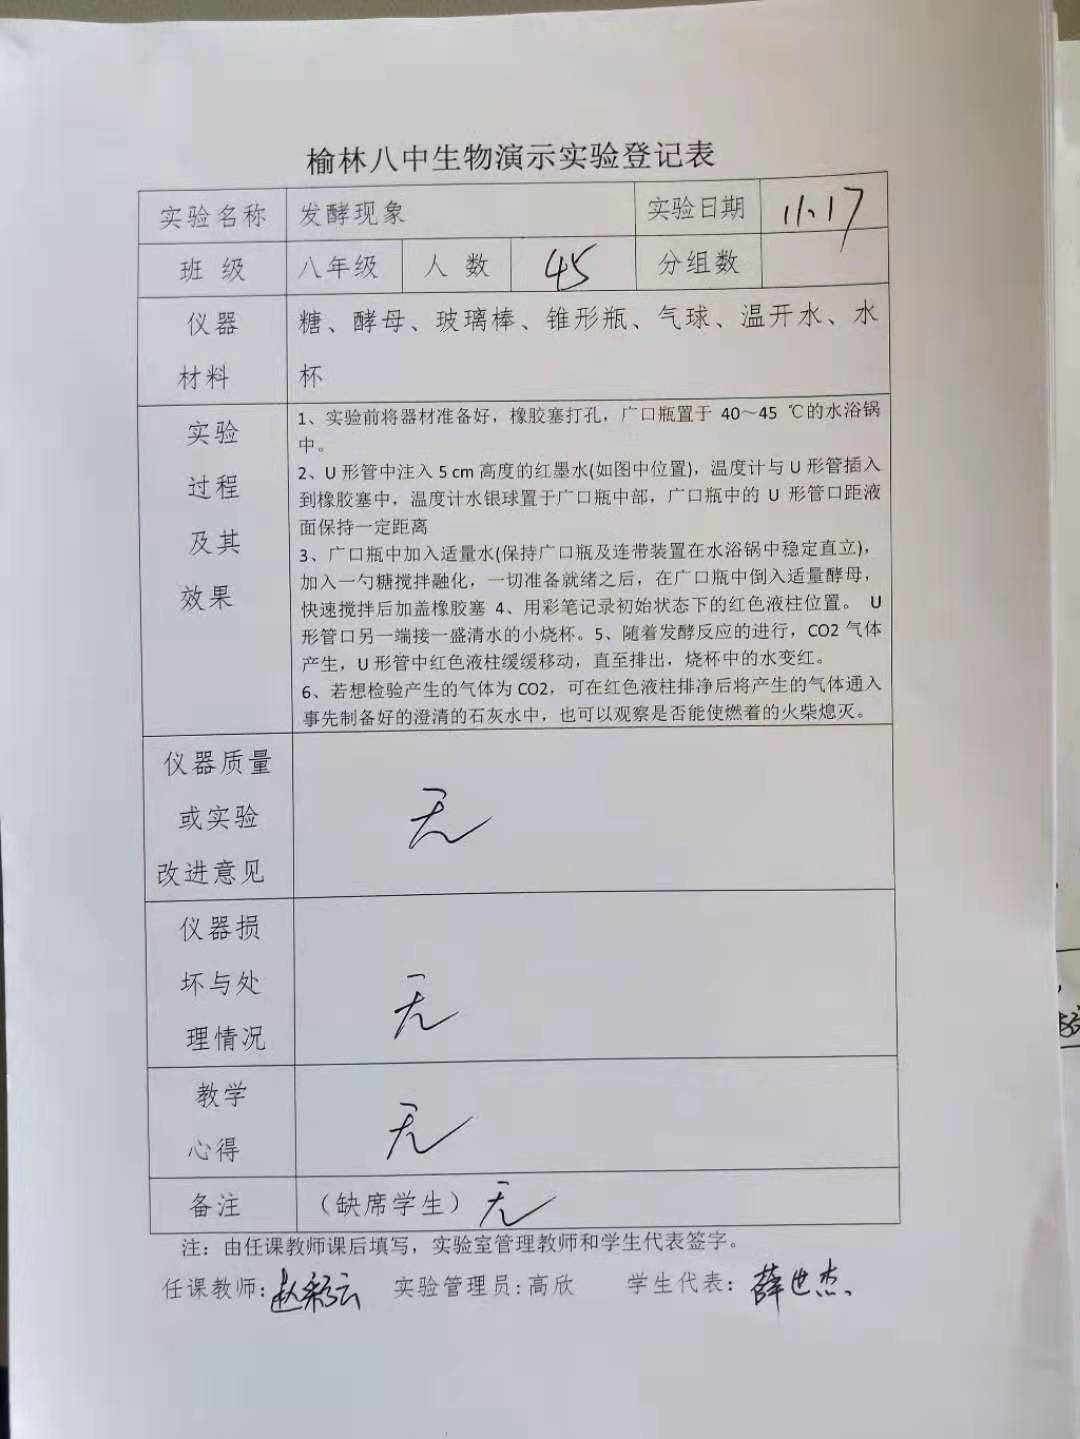 榆林八中生物演示实验登记表
实验名称 发酵现象 实验日期 11.17
班 级 八年级 人 数 45 分组数
仪器 糖、酵母、玻璃棒、锥形瓶、气球、温开水、水
材料 杯
实验
过程
及其
效果
1、实验前将器材准备好，橡胶塞打孔，广口瓶置于 40～45 ℃的水浴锅
中。
2、U 形管中注入 5 cm 高度的红墨水(如图中位置)，温度计与 U 形管插入
到橡胶塞中，温度计水银球置于广口瓶中部，广口瓶中的 U 形管口距液
面保持一定距离
3、广口瓶中加入适量水(保持广口瓶及连带装置在水浴锅中稳定直立)，
加入一勺糖搅拌融化，一切准备就绪之后，在广口瓶中倒入适量酵母，
快速搅拌后加盖橡胶塞 4、用彩笔记录初始状态下的红色液柱位置。 U
形管口另一端接一盛清水的小烧杯。5、随着发酵反应的进行，CO2 气体
产生，U 形管中红色液柱缓缓移动，直至排出，烧杯中的水变红。
6、若想检验产生的气体为 CO2，可在红色液柱排净后将产生的气体通入
事先制备好的澄清的石灰水中，也可以观察是否能使燃着的火柴熄灭。
仪器质量
或实验
改进意见
无
仪器损
坏与处
理情况
无
教学
心得
无
备注 （缺席学生）无
注：由任课教师课后填写，实验室管理教师和学生代表签字。
任课教师: 赵彩云 实验管理员: 高欣 学生代表: 薛世杰